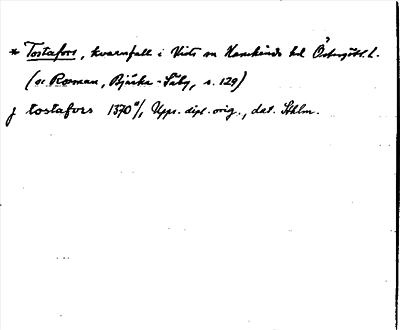 * Tostafors, kvarnfall i Vists sn Hanekinds hd Östergötl. l.
(se Roman, Bjärka-Säby, s. 129)
j tostafors 1370 /, Upps. dipl. orig., dat. Sthlm.